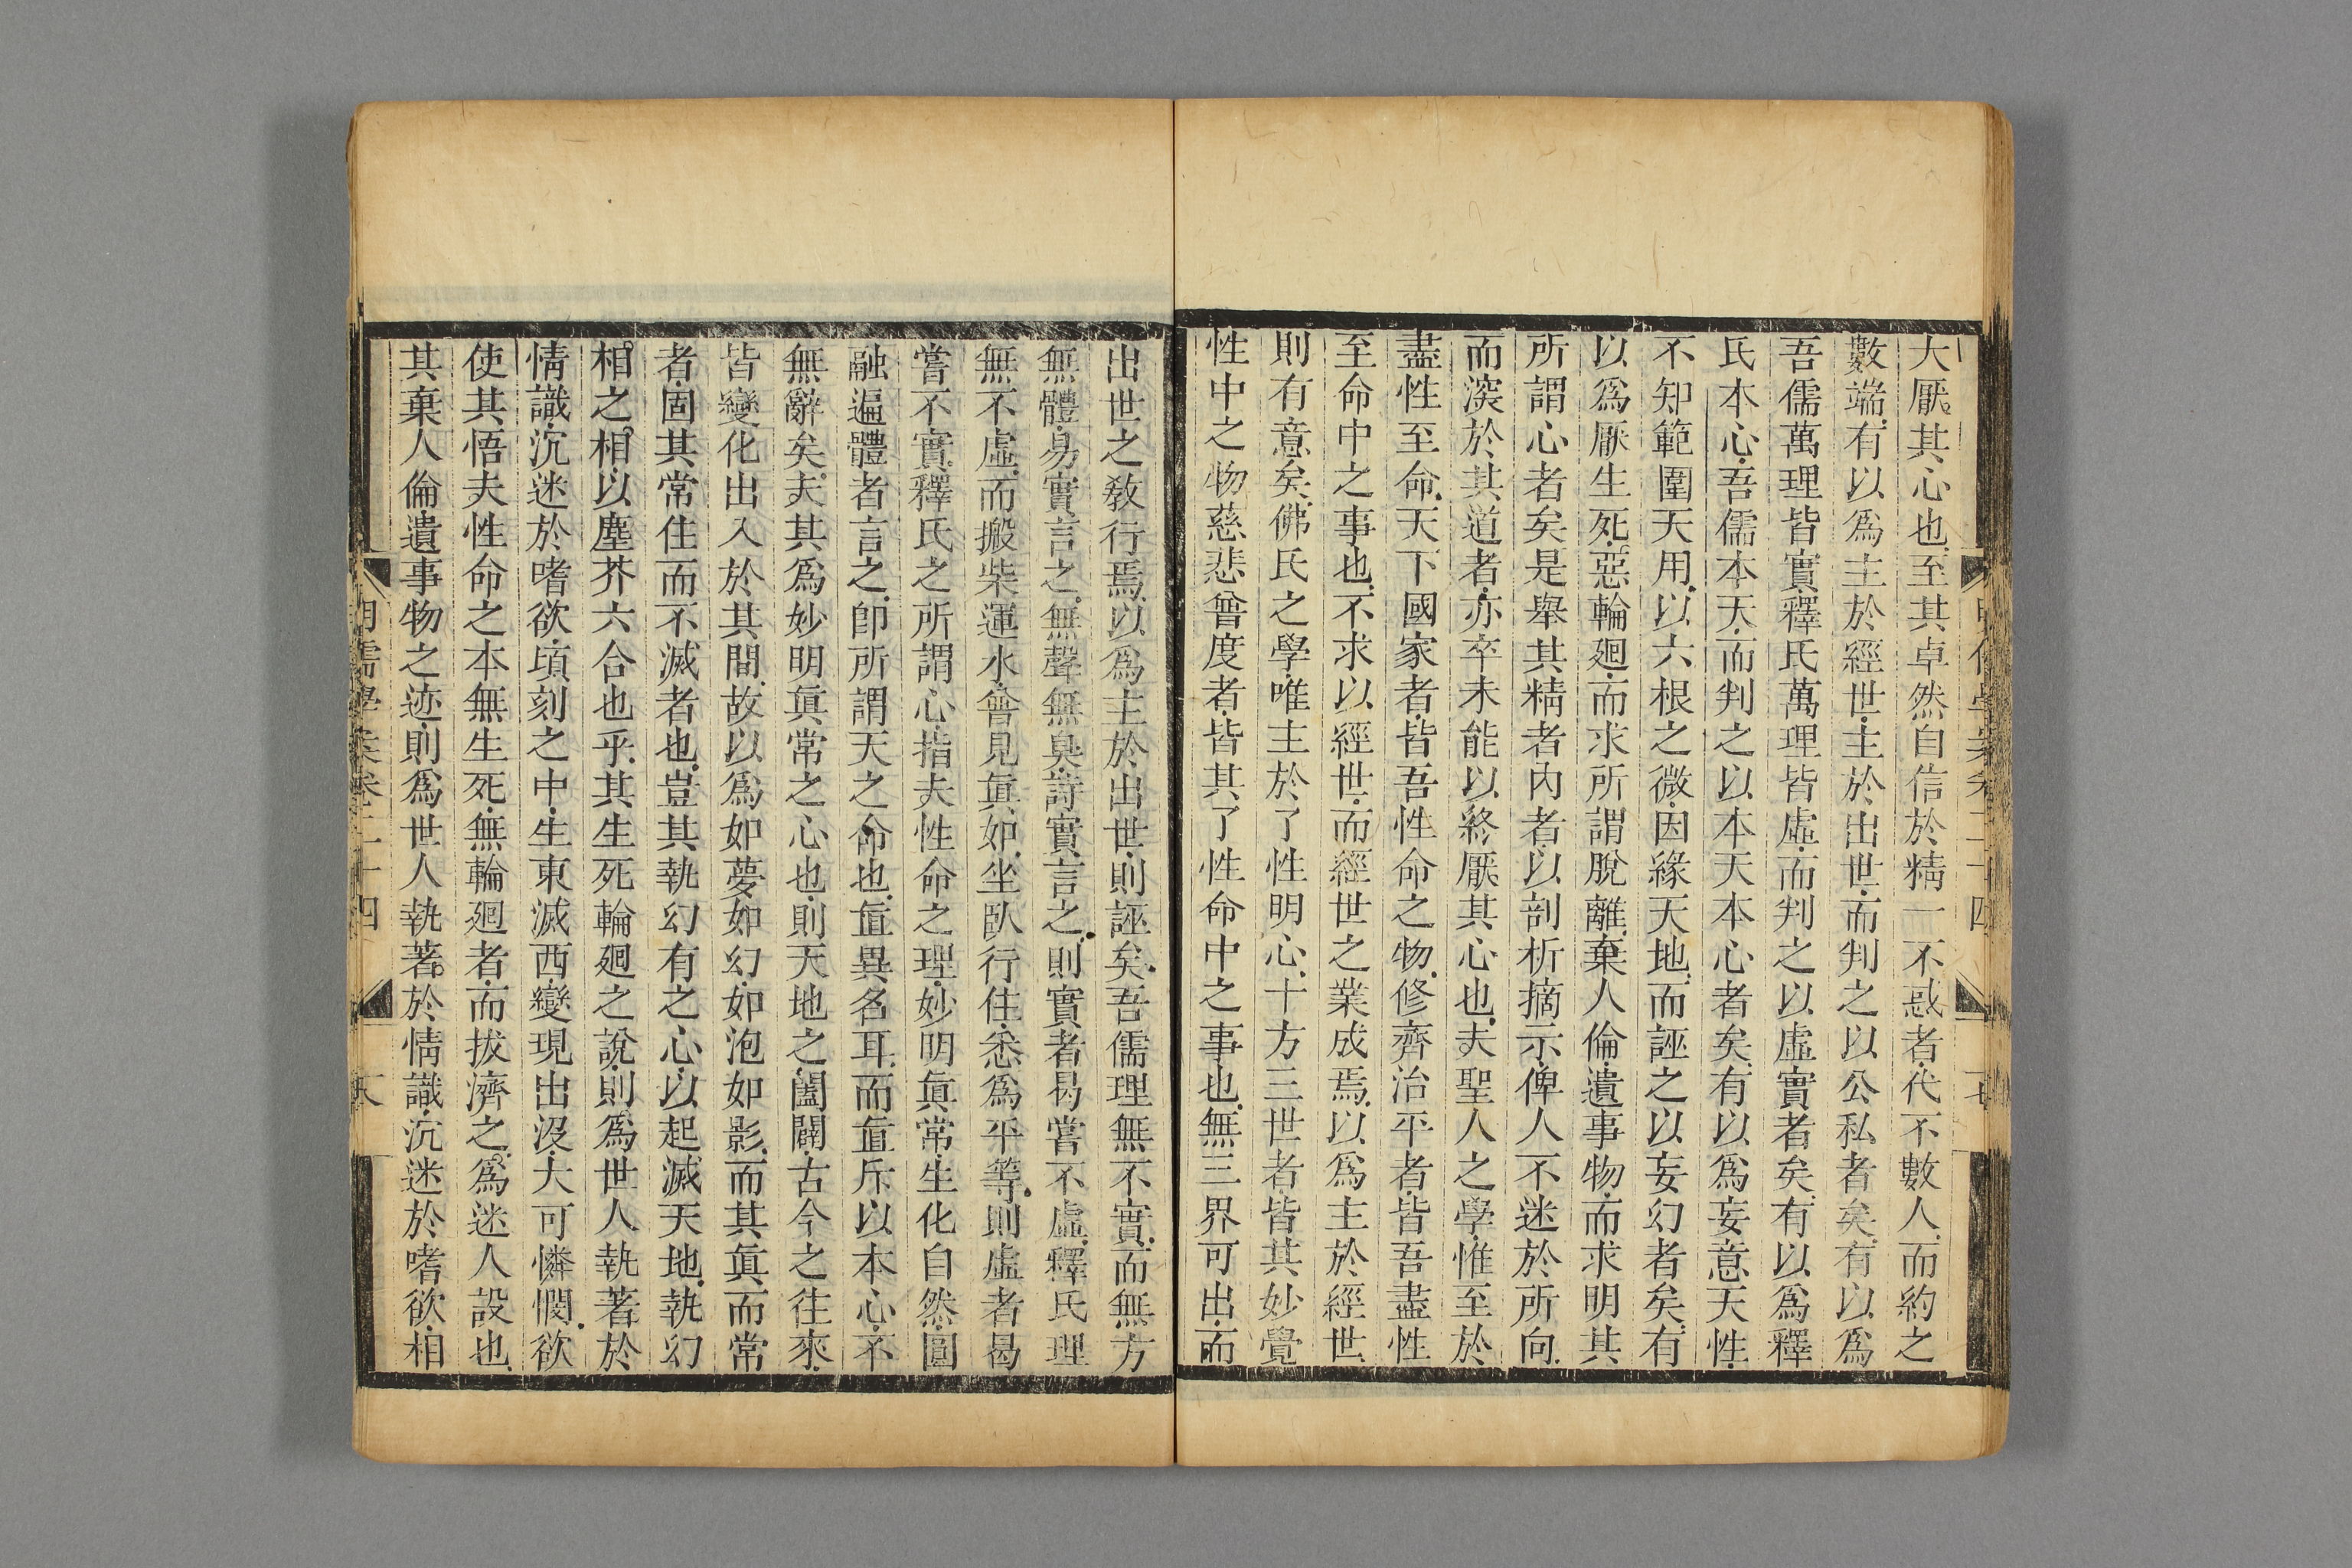 大厭其心也至其卓然自信於精一不惑者代不數人而約之
數端有以爲主於經世主於出世而判之以公私者矣有以爲
吾儒萬理皆實釋氏萬理皆虛而判之以虛實者矣有以爲釋
氏本心吾儒本天而判之以本天本心者矣有以爲妄意天性
不知範圍天用以六根之微因緣天地而誣之以妄幻者矣有
以爲厭生死惡輪廻而求所謂脫離棄人倫遺事物而求明其
所謂心者矣是舉其精者內者以剖析摘示俾人不迷於所向
而深於其道者亦卒未能以終厭其心也夫聖人之學惟至於
盡性至命天下國家者皆吾性命之物修齊治平者皆吾盡性
至命中之事也不求以經世而經世之業成焉以爲主於經世
則有意矣佛氏之學唯主於了性明心十方三世者皆其妙覺
性中之物慈悲曾度者皆其了性命中之事也無三界可出而
出世之敎行焉以爲主於出世則誣矣吾儒理無不實而無方
無體易實言之無聲無臭詩實言之則實者曷嘗不虛釋氏理
無不虛而搬柴運水會見眞如坐臥行住悉爲平等則虛者曷
嘗不實釋氏之所謂心指夫性命之理妙明眞常生化自然圓
融遍體者言之卽所謂天之命也直異名耳而直斥以本心不
無辭矣夫其爲妙明眞常之心也則天地之闔闢古今之往來
皆變化出入於其間故以爲如夢如幻如泡如影而其眞而常
者固其常住而不滅者也豈其執幻有之心以起滅天地執幻
相之相以塵芥六合也乎其生死輪廻之說則爲世人執著於
情識沉迷於嗜欲頃刻之中生東滅西變現出沒大可憐憫欲
使其悟夫性命之本無生死無輪廻者而拔濟之爲迷人設也
其棄人倫遺事物之迹則爲世人執著於情識沉迷於嗜欲相
明儒學案卷二十四
八